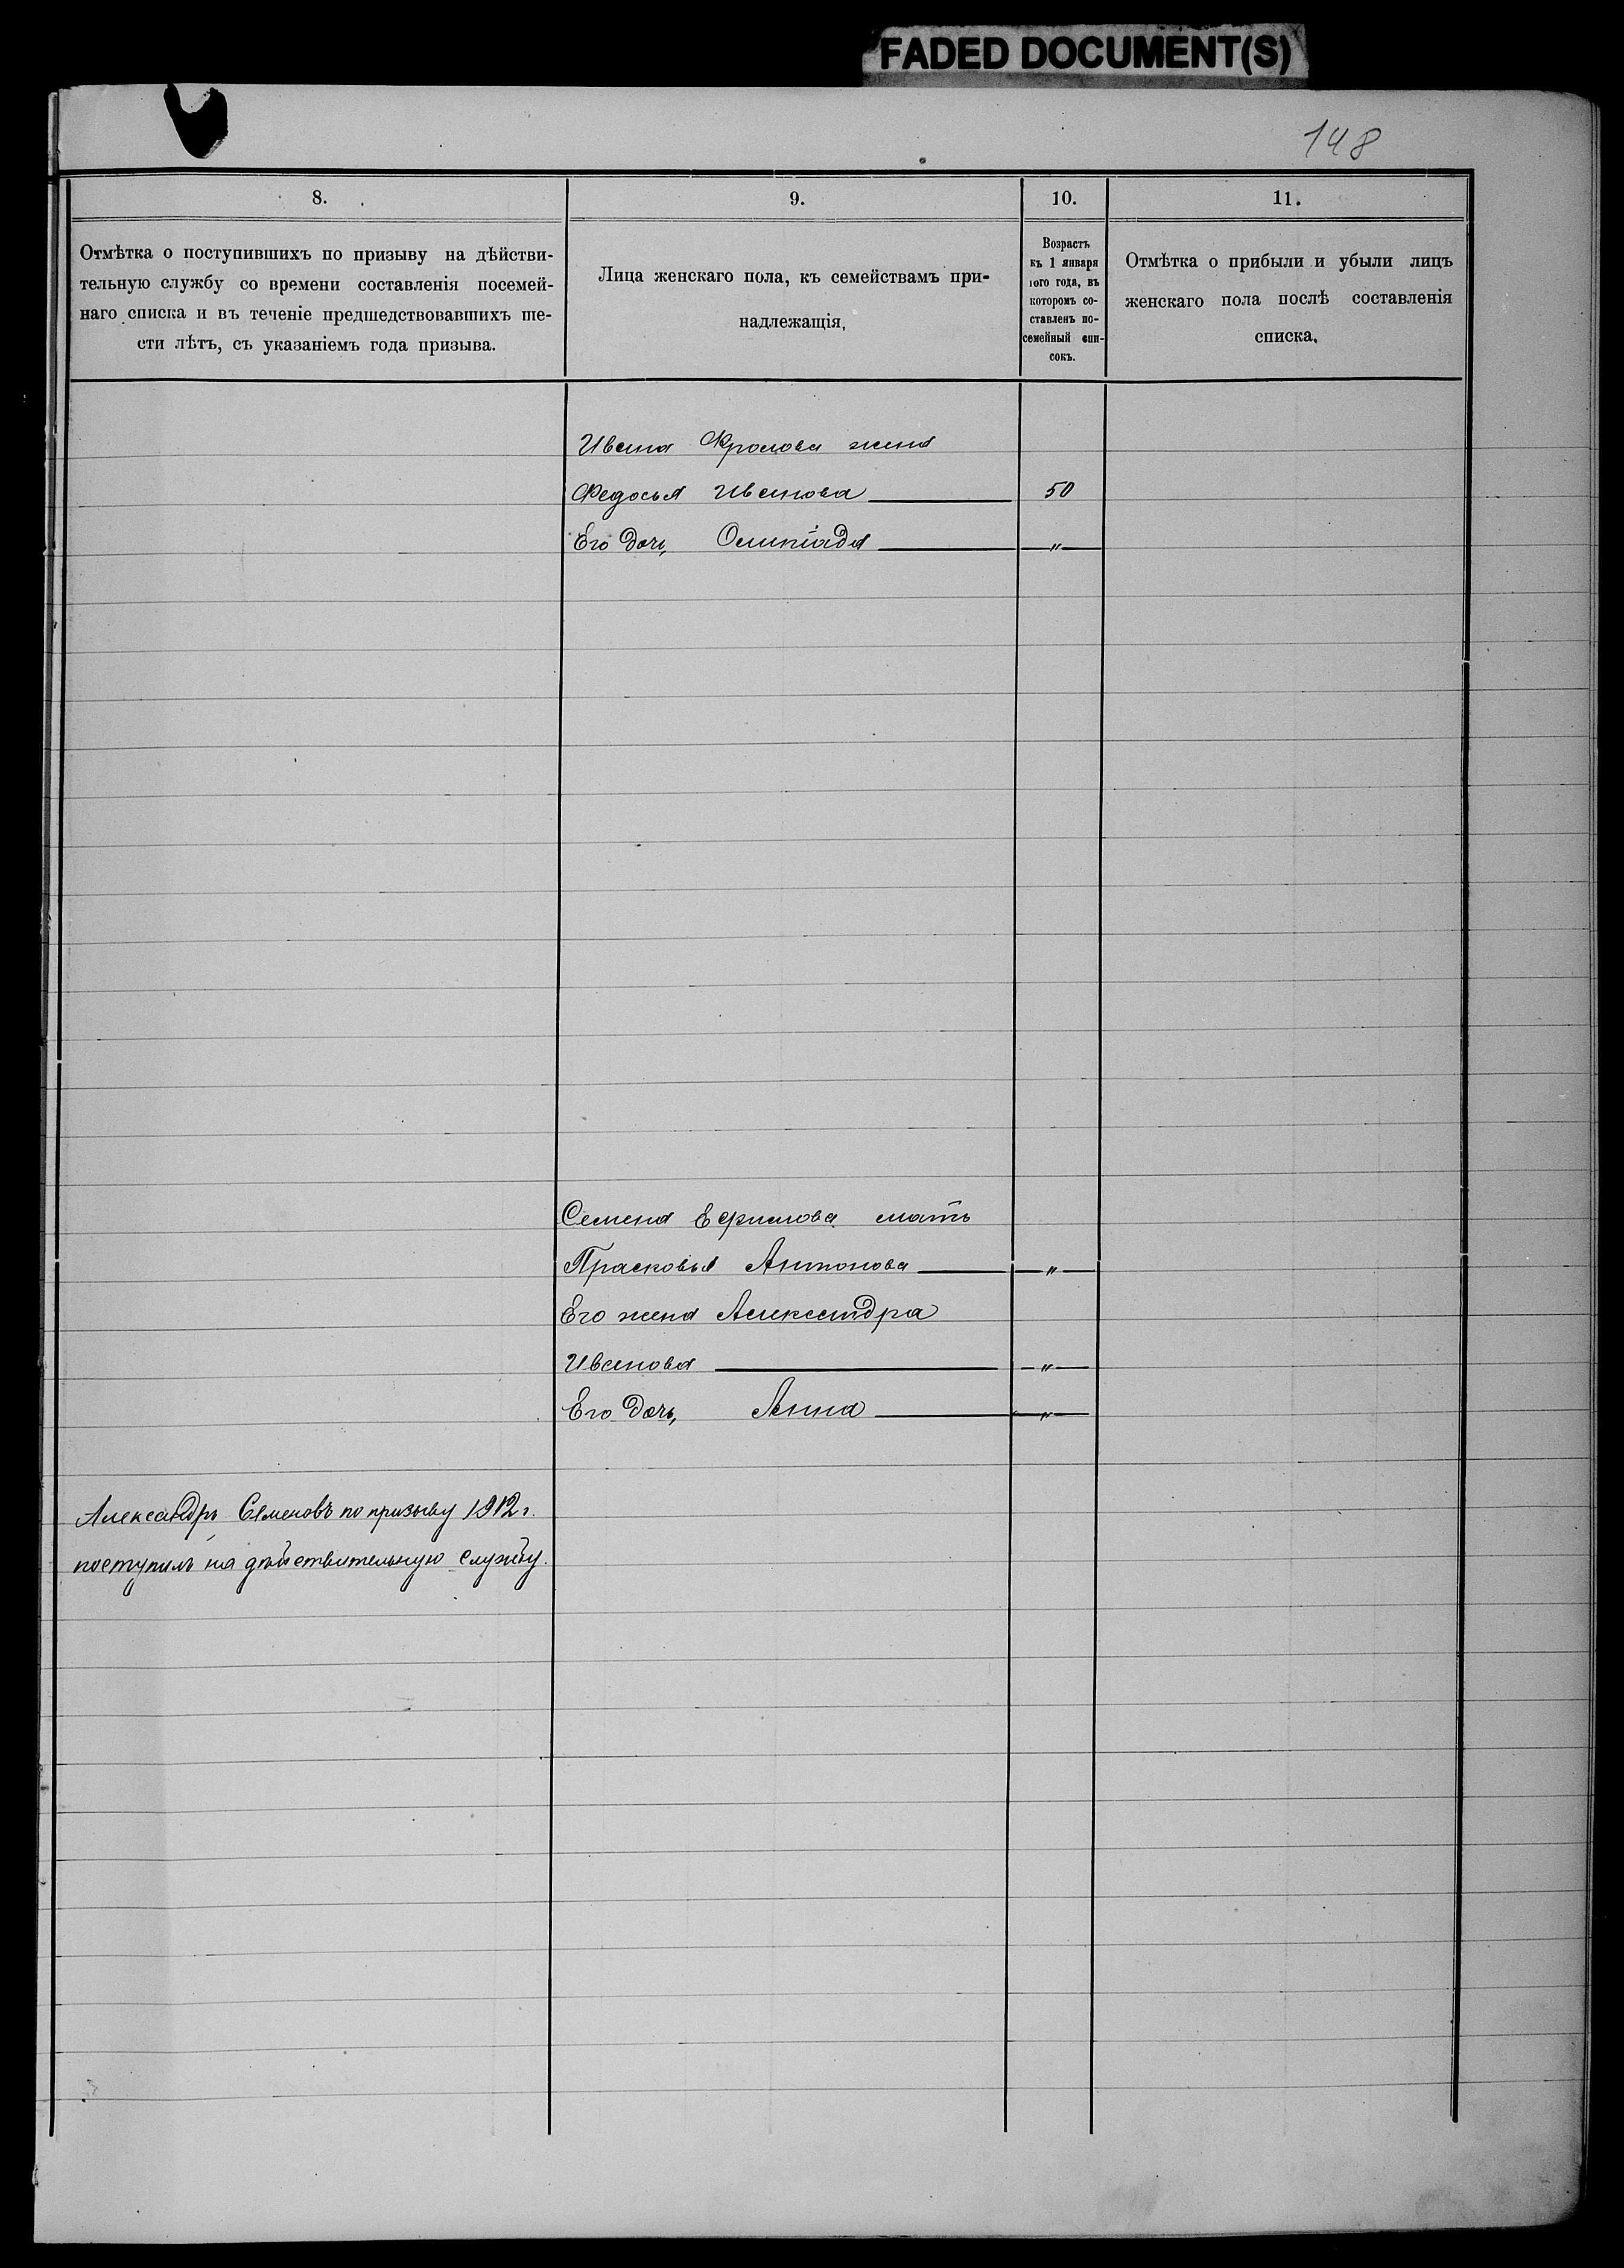 FADED DOCUMENT(S)
148
8.
Отмѣтка о поступившихъ по призыву на дѣйстви-
тельную службу со времени составленія посемей-
наго списка и въ теченіе предшедствовавшихъ ше-
сти лѣтъ, съ указаніемъ года призыва.
9.
Лица женскаго пола, къ семействамъ при-
надлежащія,
10.
Возрастъ
къ 1 января
того года, въ
которомъ со-
ставленъ по-
семейный спи-
сокъ.
11.
Отмѣтка о прибыли и убыли лицъ
женскаго пола послѣ составленія
списка.
Ивана Фролова жена
Федосья Иванова 50
Его дочь Олимпіада "
Семена Ефимова мать
Прасковья Антонова "
Его жена Александра
Иванова "
Его дочь Анна "
Александръ Семеновъ по призыву 1912 г.
поступилъ на дѣйствительную службу.